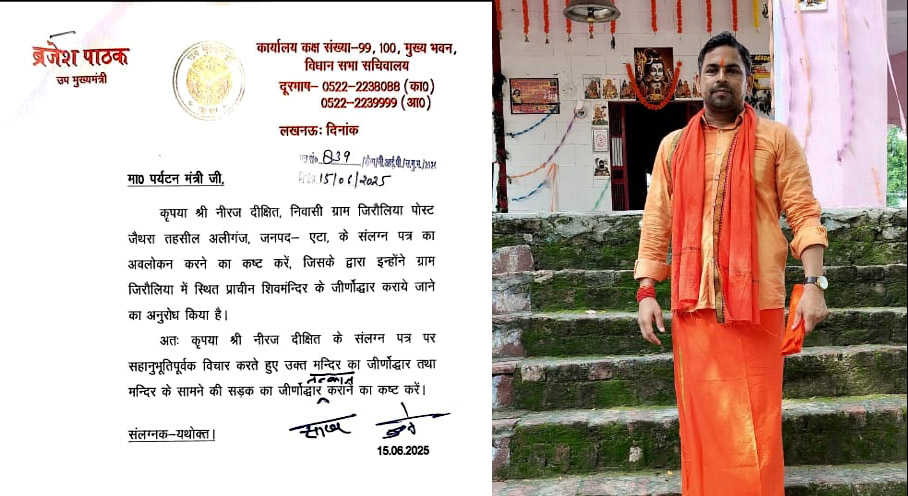 ब्रजेश पाठक
उप मुख्यमंत्री
कार्यालय कक्ष संख्या-99, 100, मुख्य भवन,
विधान सभा सचिवालय
दूरभाष- 0522-2238088 (का0)
0522-2239999 (आ0)
लखनऊः दिनांक
839
2025
15/06/2025
मा0 पर्यटन मंत्री जी,
कृपया श्री नीरज दीक्षित, निवासी ग्राम जिरौलिया पोस्ट
जैथरा तहसील अलीगंज, जनपद- एटा, के संलग्न पत्र का
अवलोकन करने का कष्ट करें, जिसके द्वारा इन्होंने ग्राम
जिरौलिया में स्थित प्राचीन शिवमंन्दिर के जीर्णोद्धार कराये जाने
का अनुरोध किया है।
अतः कृपया श्री नीरज दीक्षित के संलग्न पत्र पर
सहानुभूतिपूर्वक विचार करते हुए उक्त मन्दिर का जीर्णोद्धार तथा
तत्काल
मन्दिर के सामने की सड़क का जीर्णोद्धार कराने का कष्ट करें।
संलग्नक-यथोक्त।
15.06.2025